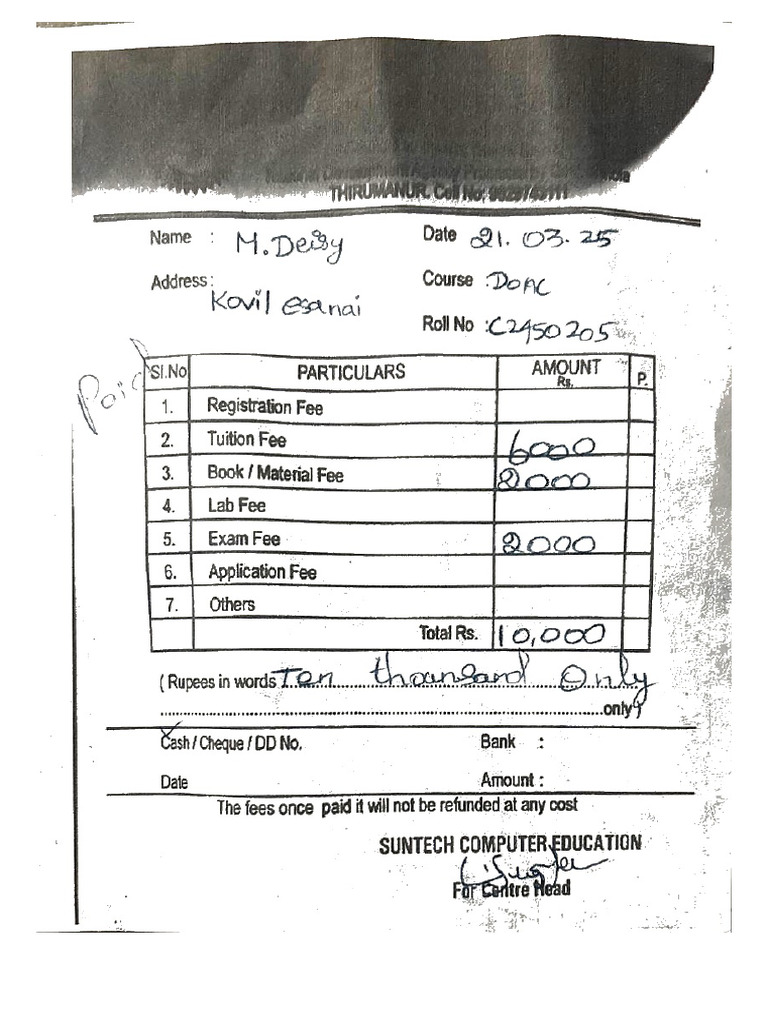 THIRUMANUR. Cell No:
Name : M. Deisy Date 21.03.25
Address: Kovil esanai Course : DOAC
Roll No : C2450205
Paid
Sl.No PARTICULARS AMOUNT Rs. P.
1. Registration Fee
2. Tuition Fee 6000
3. Book / Material Fee 2000
4. Lab Fee
5. Exam Fee 2000
6. Application Fee
7. Others
Total Rs. 10,000
( Rupees in words Ten thousand Only
only)
Cash / Cheque / DD No. Bank :
Date Amount :
The fees once paid it will not be refunded at any cost
SUNTECH COMPUTER EDUCATION
For Centre Head